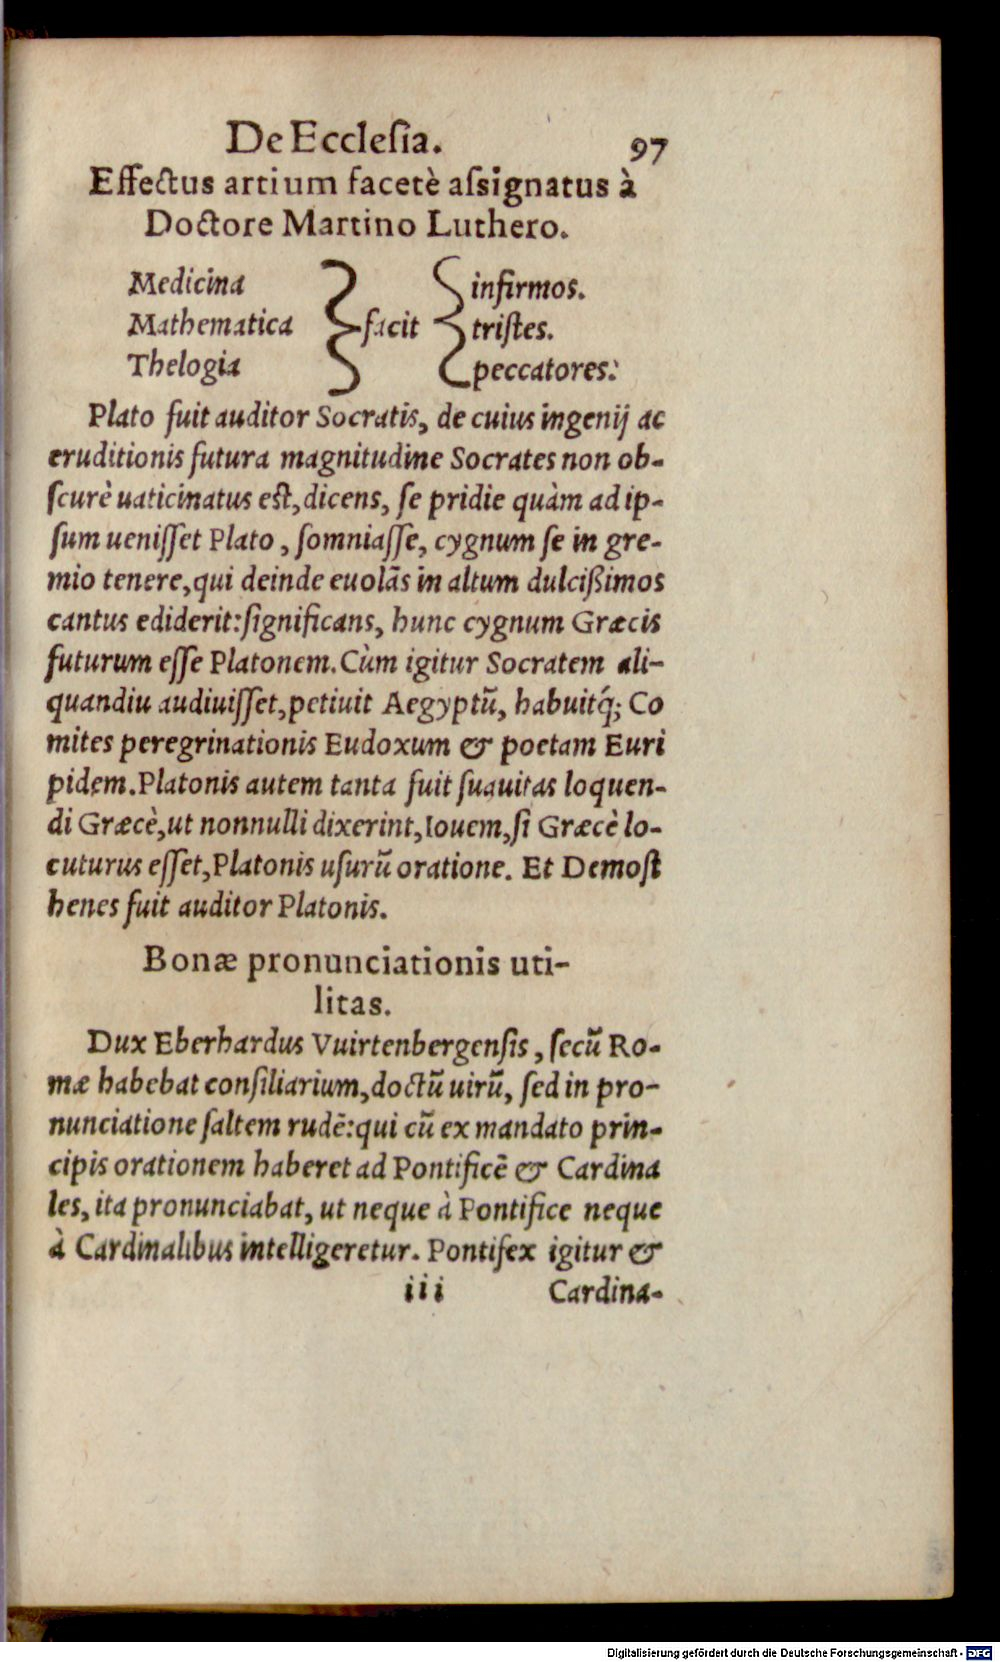 De Ecclesia. 97
Effectus artium facetè assignatus à
Doctore Martino Luthero.
Medicina infirmos.
Mathematica facit tristes.
Thelogia peccatores:
Plato fuit auditor Socratis, de cuius ingenij ac
eruditionis futura magnitudine Socrates non ob-
ſcurè uaticinatus est, dicens, ſe pridie quàm ad ip-
ſum ueniſſet Plato, ſomniaſſe, cygnum ſe in gre-
mio tenere, qui deinde euolãs in altum dulcißimos
cantus ediderit: ſignificans, hunc cygnum Græcis
futurum eſſe Platonem. Cùm igitur Socratem ali-
quandiu audiuiſſet, petiuit Aegyptũ, habuitq́; Co
mites peregrinationis Eudoxum & poetam Euri
pidem. Platonis autem tanta fuit ſuauitas loquen-
di Græcè, ut nonnulli dixerint, Iouem, ſi Græcè lo-
cuturus eſſet, Platonis uſurũ oratione. Et Demoſt
henes fuit auditor Platonis.
Bonæ pronunciationis uti-
litas.
Dux Eberhardus Vuirtenbergenſis, ſecũ Ro-
mæ habebat conſiliarium, doctũ uirũ, ſed in pro-
nunciatione ſaltem rudẽ: qui cũ ex mandato prin-
cipis orationem haberet ad Pontificẽ & Cardina
les, ita pronunciabat, ut neque à Pontifice neque
à Cardinalibus intelligeretur. Pontifex igitur &
iii Cardina-
Digitalisierung gefördert durch die Deutsche Forschungsgemeinschaft - DFG